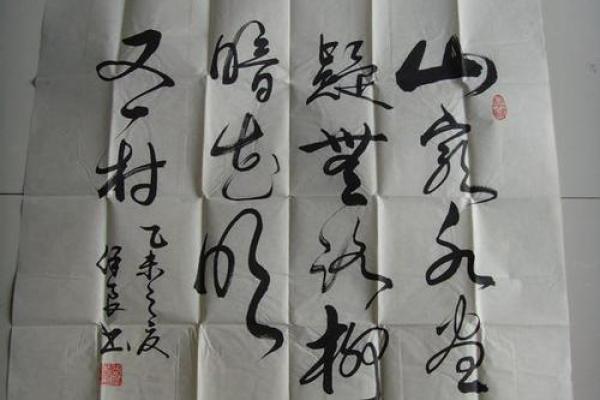 山窮水盡
疑無路柳
暗花明
又一村
乙未之夏
书